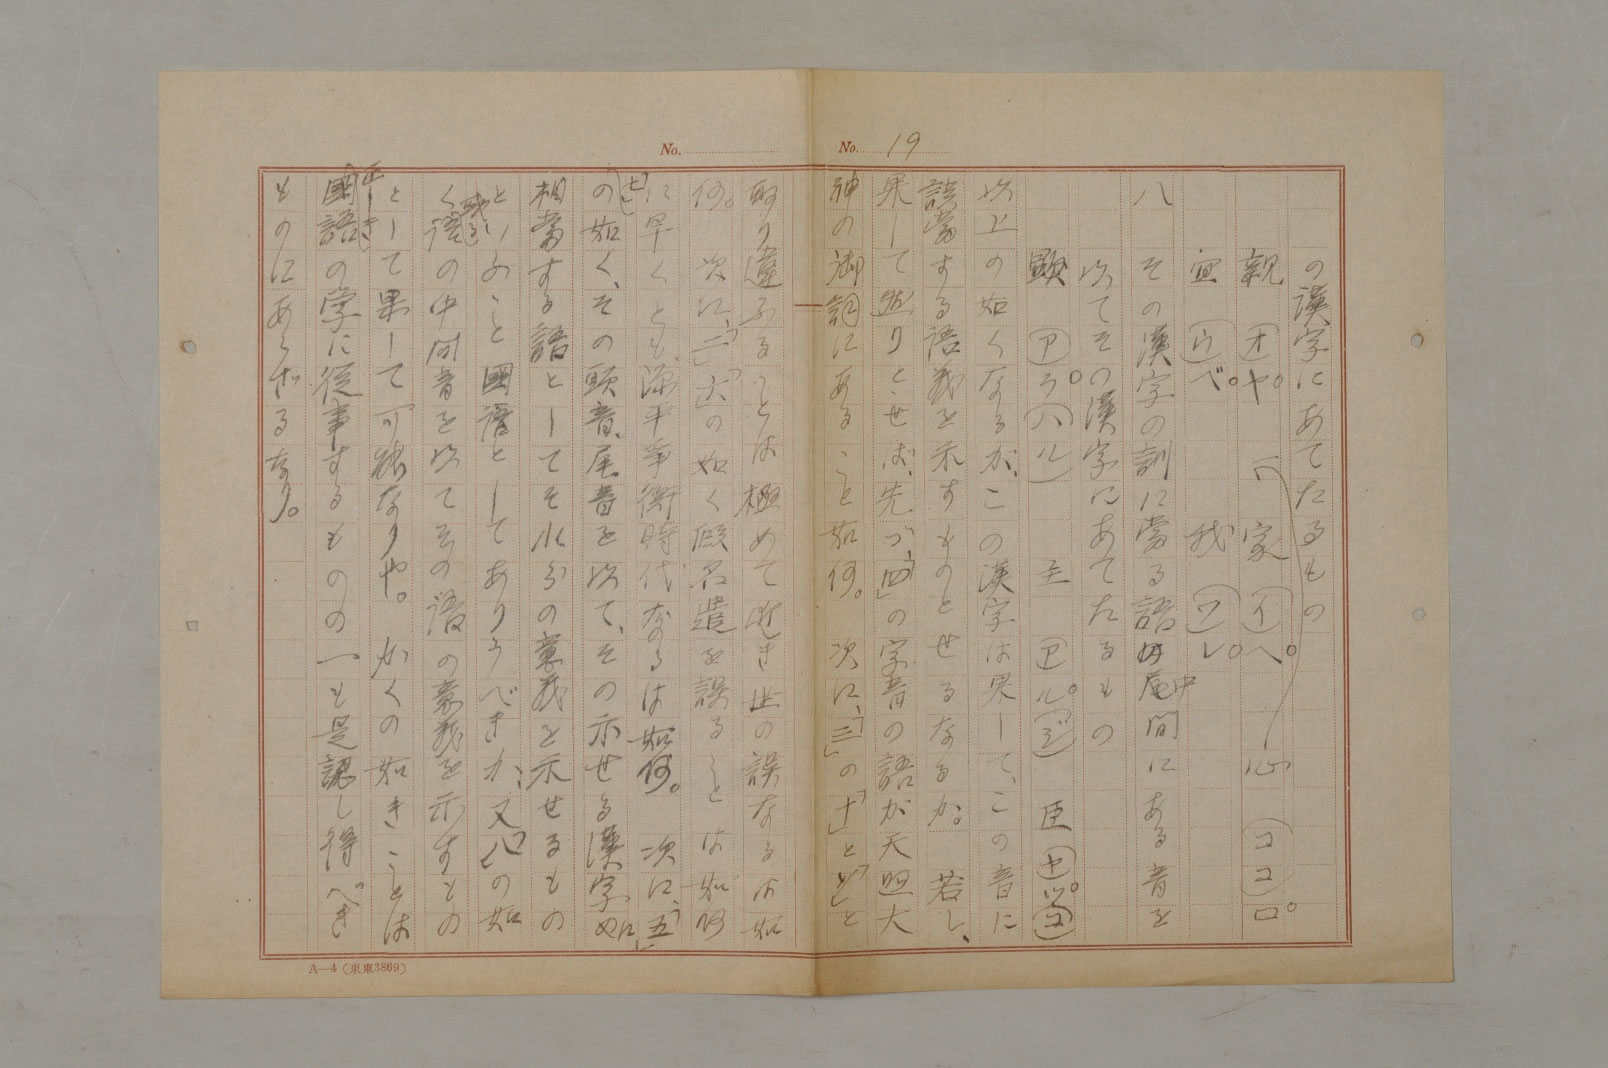 No. 19
の漢字にあてたるもの
親 オヤ。 家 イヘ。 心 ココロ。
宜 ウベ。 我 ワレ。
八 その漢字の訓に當る語の中間にある音を
以てその漢字にあてたるもの
顯 アラハル 主 アルジ 臣 ヤツコ
以上の如くなるが、この漢字は果して、この音に
該當する語義を示すものとせるなるか。若し、
果して然りとせば、先づ、「四」の字音の語が天照大
神の御詞にあること如何。 次に、「三」の「十」と「と」と
取り違ふることは極めて近き世の誤なるは如
何。 次に、「二」「六」の如く假名遣を誤ることは如何
に早くとも、源平爭衡時代なるは如何。 次に、「五」
「七」の如く、その頭音、尾音を以て、その示せる漢字に
相當する語としてそれらの意義を示せるもの
といふこと國語としてありうべきか、又「八」の如
く或る語の中間音を以てその語の意義を示すもの
として果して可能なりや。 かくの如きことは
正しき國語の學に從事するものの一も是認し得べき
ものにあらざるなり。
No.
A—4 (東東3869)